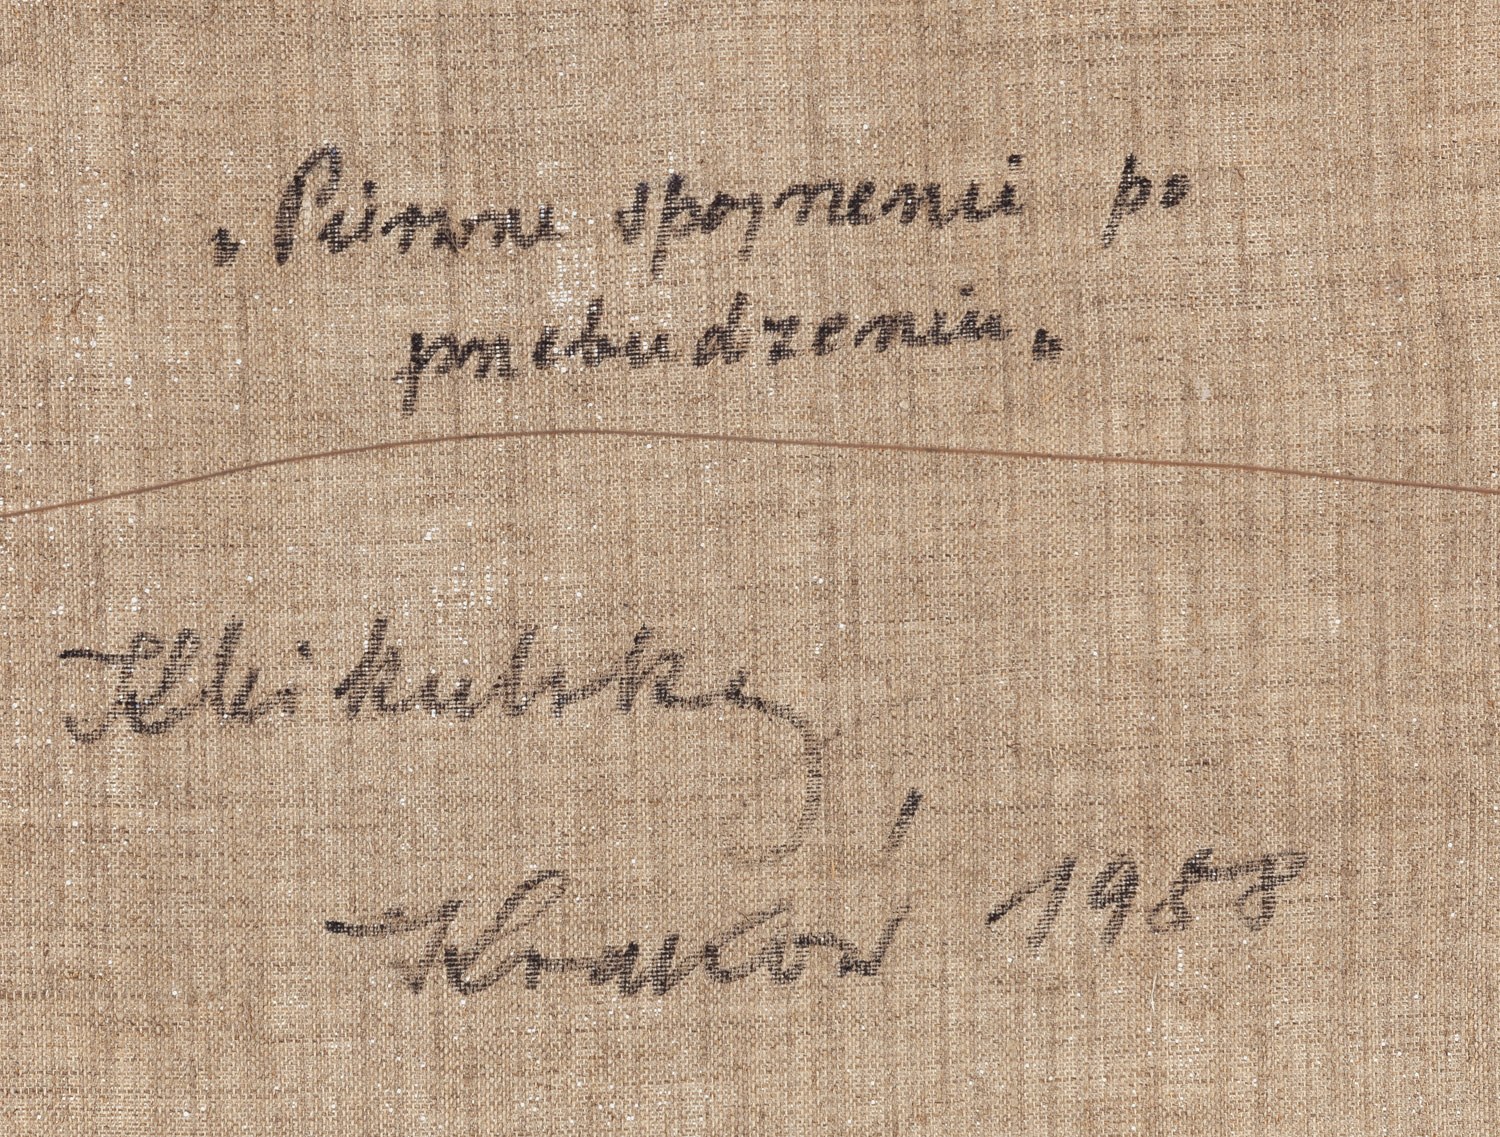 „Pierwsze spojrzenie po
przebudzeniu"
KMikulski
Kraków 1988